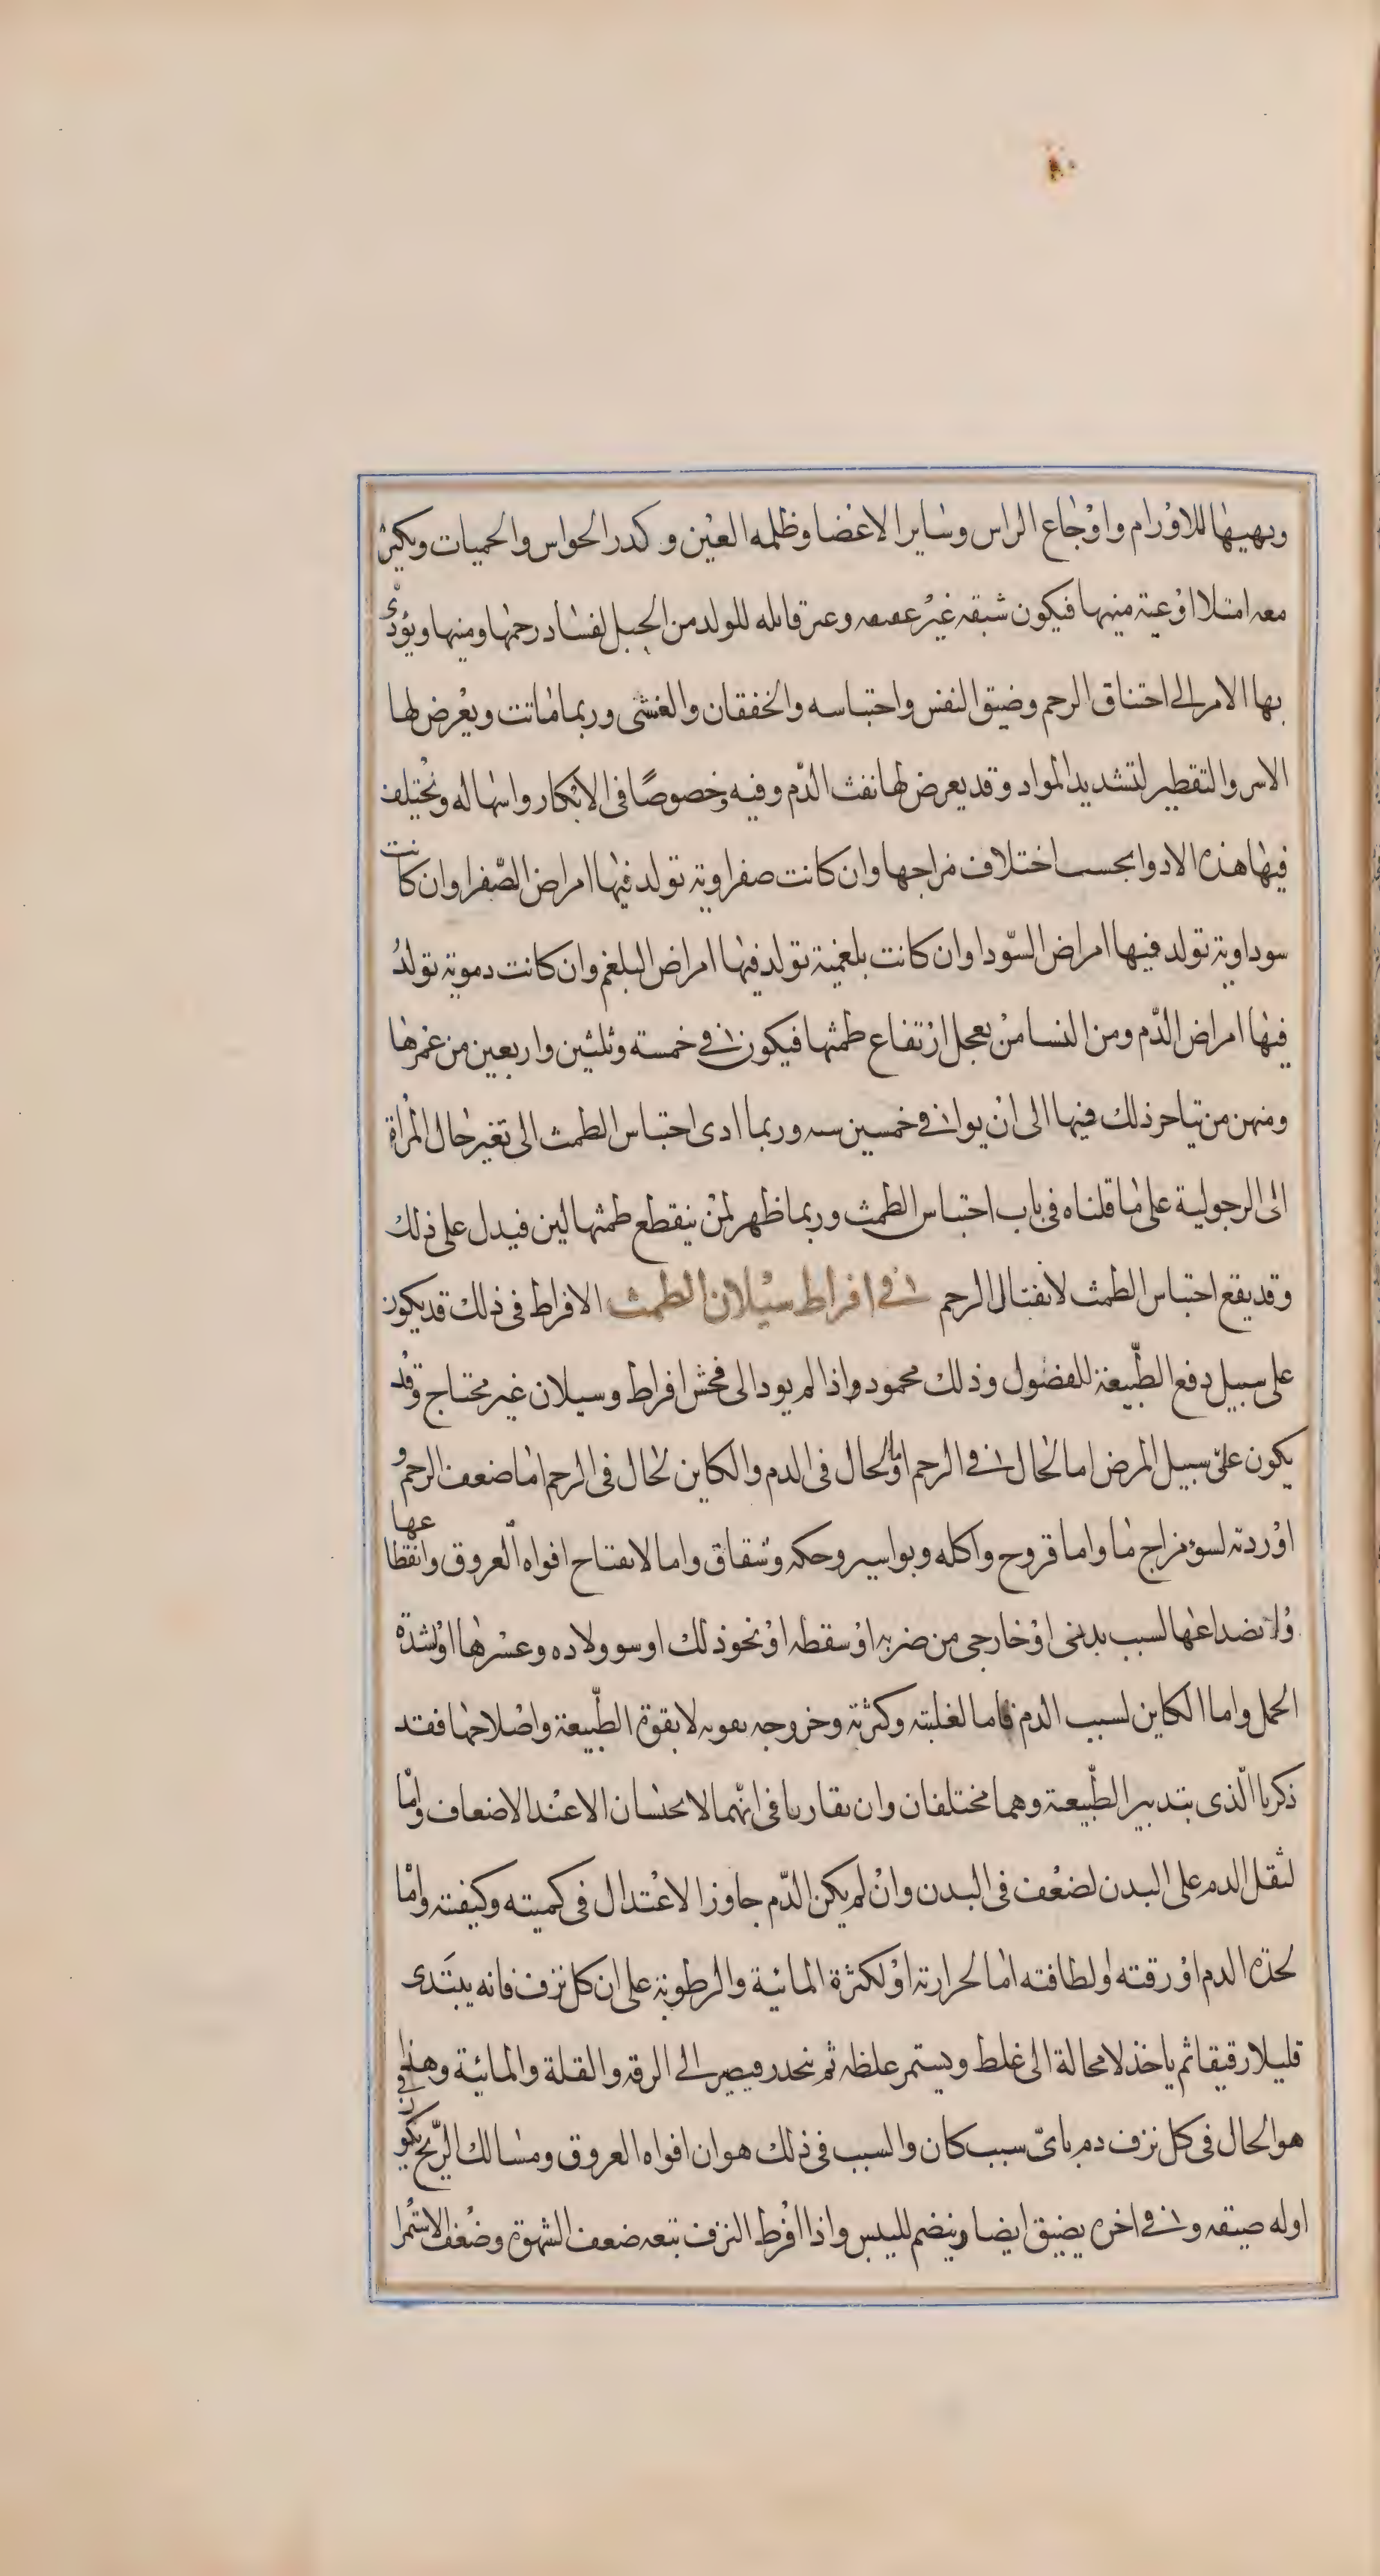 ويهيها للاورام واوجاع الراس وساير الاعضا وظلمه العين وكدر الحواس والحميات ويكثر
معه امتلا اوعية منيها فيكون شبقه غير عفيفه وغير قابله للولد من الحبل لفساد رحمها ومنيها ويؤدى
بها الامر الى اختناق الرحم وضيق النفس واحتباسه والخفقان والغشى وربما ماتت ويعرض لها
الاسر والتقطير لتشديد المواد وقد يعرض لها نفث الدم وفيه وخصوصًا فى الابكار واسهاله وتختلف
فيها هذه الادوا بحسب اختلاف مزاجها وان كانت صفراوية تولد فيها امراض الصفرا وان كانت
سوداوية تولد فيها امراض السودا وان كانت بلغمية تولد فيها امراض البلغم وان كانت دموية تولد
فيها امراض الدم ومن النسا من يعجل ارتفاع طمثها فيكون فى خمسة وثلثين واربعين من عمرها
ومنهن من تياخر ذلك فيها الى ان يوافى خمسين سنه وربما ادى احتباس الطمث الى تغير حال المراة
الى الرجولية على ما قلناه فى باب احتباس الطمث وربما ظهر لمن ينقطع طمثها لبن فيدل على ذلك
وقد يقع احتباس الطمث لانفتال الرحم فى افراط سيلان الطمث الافراط فى ذلك قد يكون
على سبيل دفع الطبيعة للفضول وذلك محمود واذا لم يود الى فحش افراط وسيلان غير محتاج وقد
يكون على سبيل المرض اما لحال فى الرحم او لحال فى الدم والكاين لحال فى الرحم اما ضعف الرحم و
اوردته لسوء مزاج ما واما قروح واكله وبواسير وحكه وشقاق واما لانفتاح افواه العروق وانقطاعها
وانصداعها لسبب بدنى او خارجى من ضربه او سقطه او نحو ذلك او سو ولاده وعسرها او لشدة
الحمل واما الكاين لسبب الدم فاما لغلبته وكثرته وخروجه بقوته لا بقوة الطبيعة واصلاحها فقد
ذكرنا الذى بتدبير الطبيعة وهما مختلفان وان تقاربا فى انهما لا يحبسان الا عند الاضعاف واما
لثقل الدم على البدن لضعف فى البدن وان لم يكن الدم جاوز الاعتدال فى كميته وكيفيته واما
لحدة الدم او رقته او لطافته اما لحرارته او لكثرة المائية والرطوبة على ان كل نزف فانه يبتدى
قليلا رقيقا ثم ياخذ لا محالة الى غلط ويستمر غلظه ثم ينحدر فيصير الى الرقه والقلة والمائية وهذا
هو الحال فى كل نزف دم باىّ سبب كان والسبب فى ذلك هو ان افواه العروق ومسالك الريح يكون فى
اوله ضيقه وفى اخره يضيق ايضا وينضم لليبس واذا افرط النزف تبعه ضعف الشهوة وضعف الاستمرا